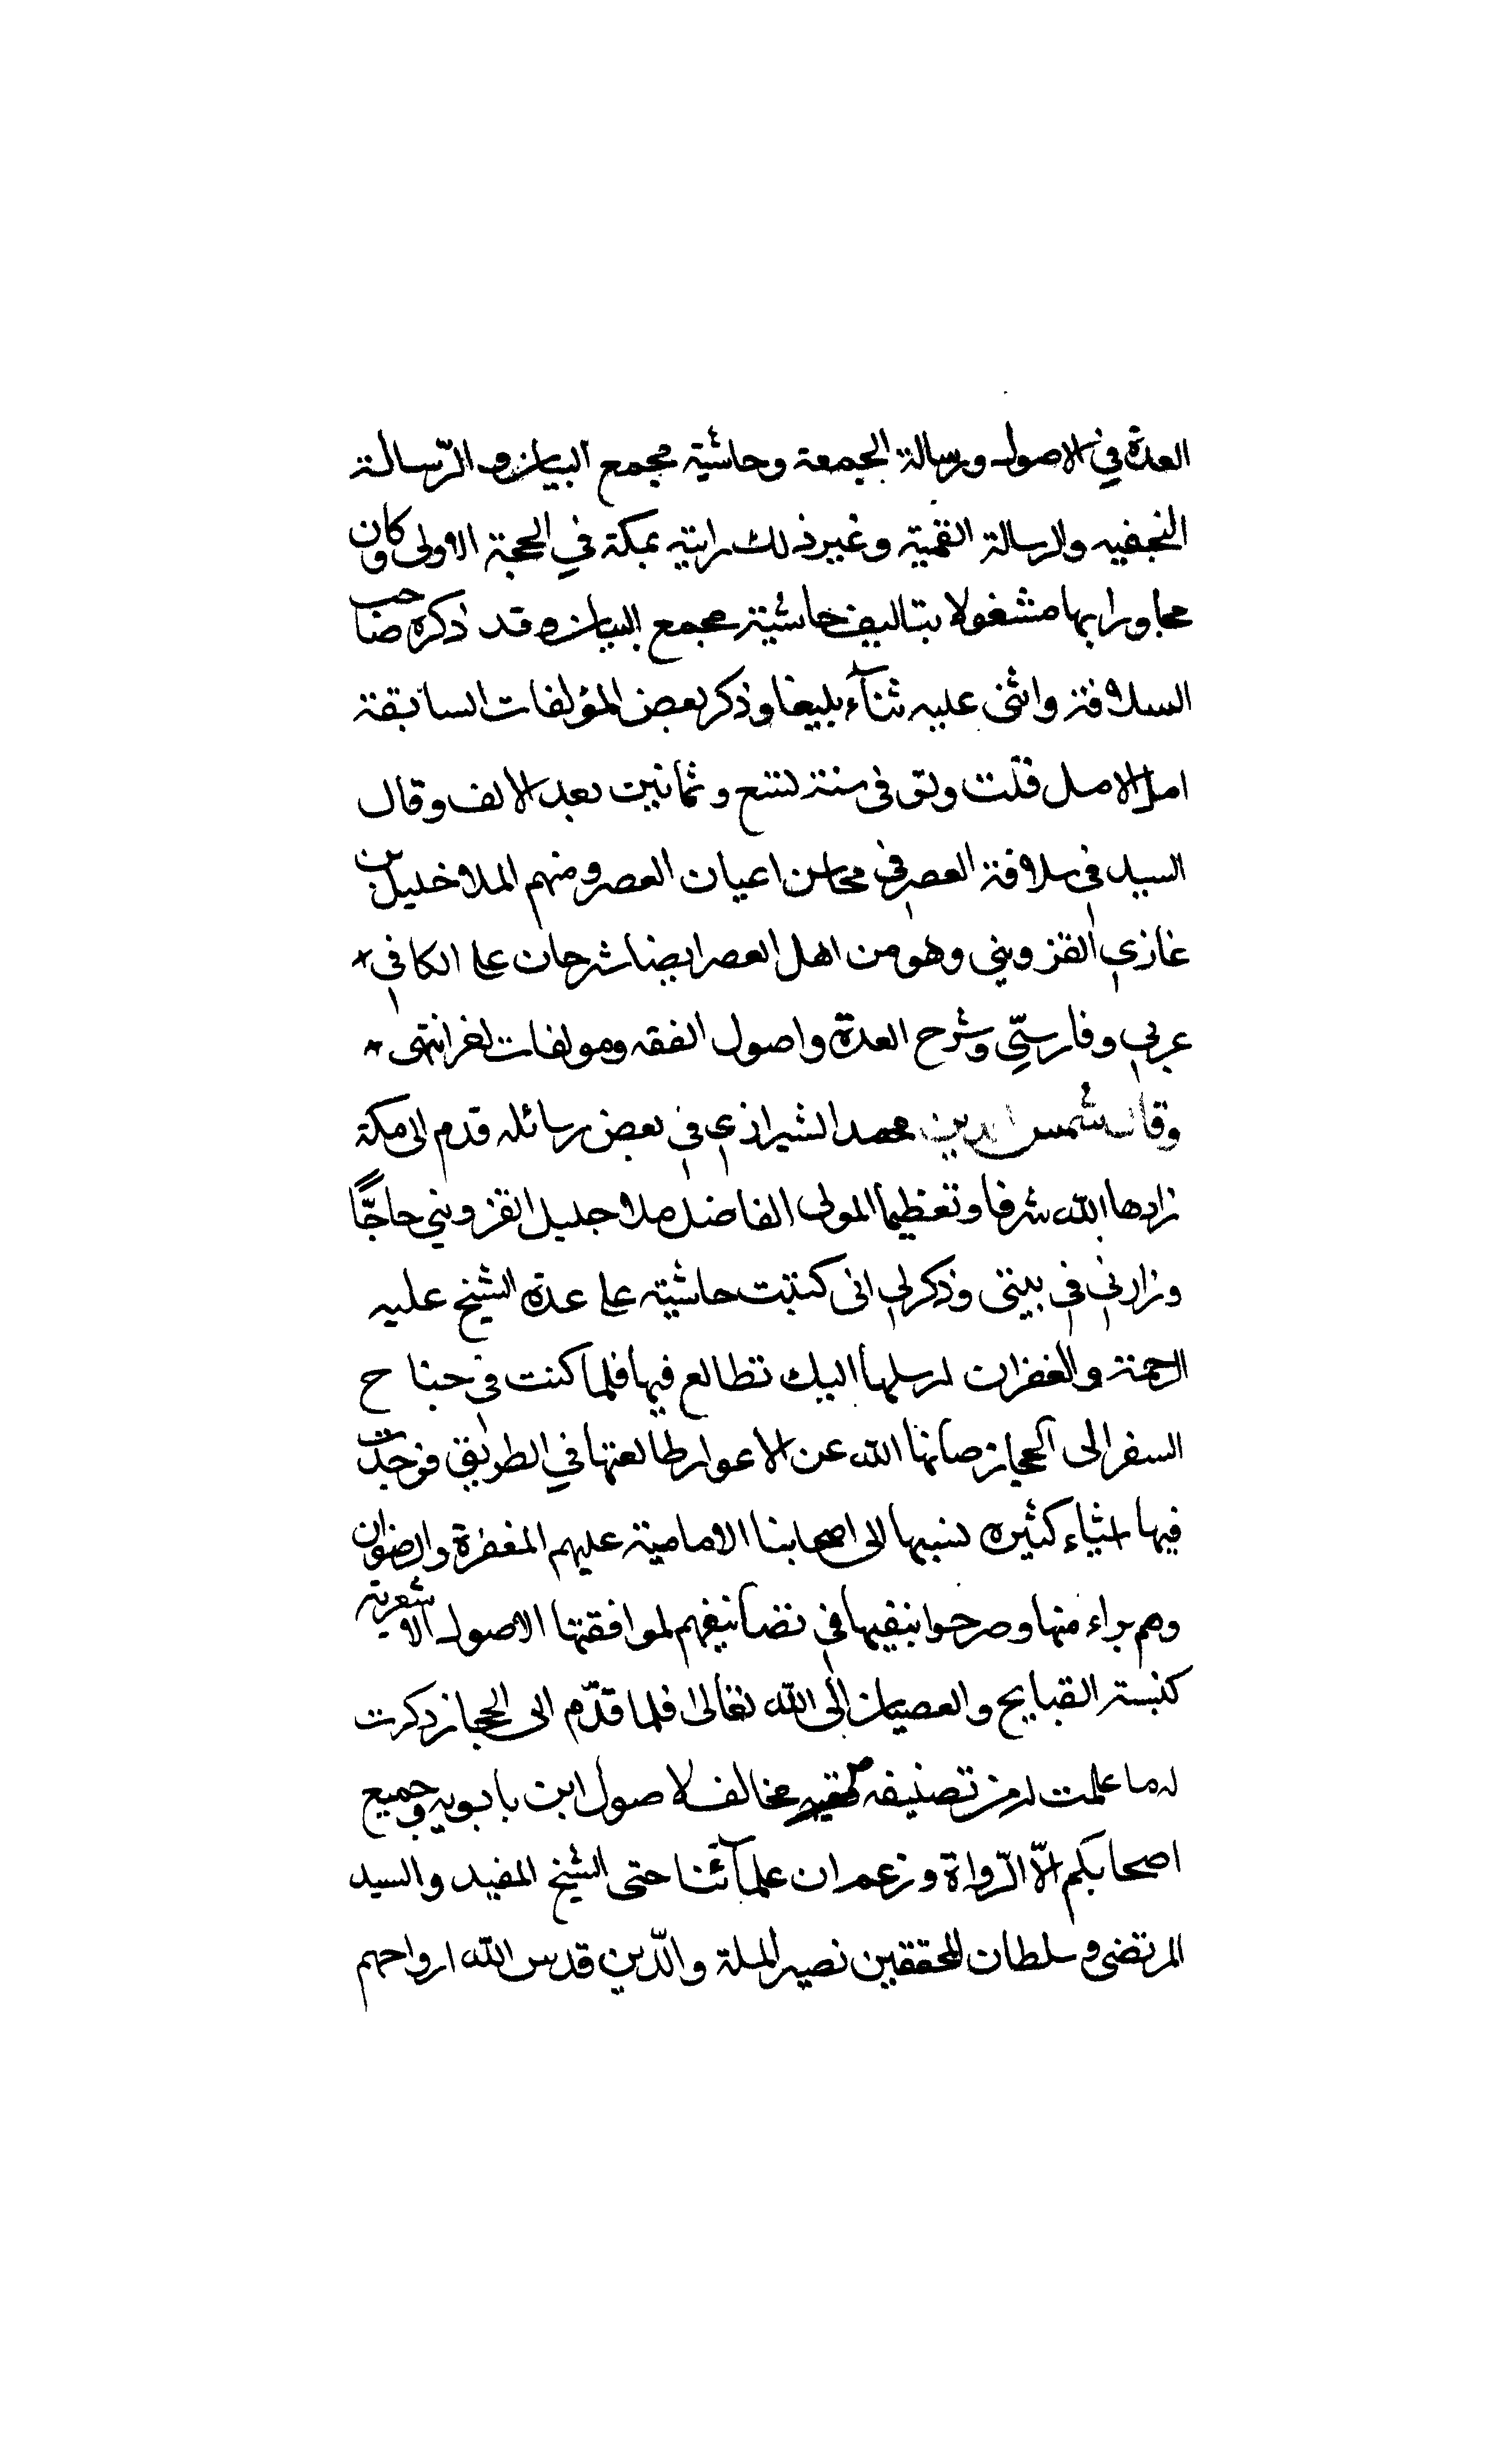 العدة في الاصول ورسالة الجمعة وحاشية مجمع البيان والرّسالة
النجفيه والرسالة القمية وغير ذلك رايته بمكة في الحجة الاولى وكان
مجاورا بها مشغولا بتاليف حاشية مجمع البيان وقد ذكره صاحب
السلافة واثنى عليه ثنآء بليغا وذكر بعض المؤلفات السابقة
امل الامل قلت وتوفى في سنة تسع وثمانين بعد الالف وقال
السيد في سلافة العصر في محاسن اعيان العصر ومنهم الملا خليل بن
غازي القزويني وهو من اهل العصر ايضا شرحان على الكافي
عربي وفارسيّ وشرح العدة واصول الفقه ومولفات اخر انتهى
وقال شمس الدين محمد الشيرازي في بعض رسائله قدم الى مكة
زادها الله شرفا وتعظيما المولى الفاضل ملا جليل القزويني حاجّا
وزارني في بيتي وذكر لي اني كتبت حاشية على عدة الشيخ عليه
الرحمة والغفران ارسلها اليك تطالع فيها فلما كنت في جناح
السفر الى الحجاز صانها الله عن الاعوار طالعتها في الطريق فوجدت
فيها اشياء كثيره نسبها الى اصحابنا الامامية عليهم المغفرة والرضوان
وهم براء منها وصرحوا بنفيها في تصانيفهم لموافقتها الاصول الاشعرية
كنسبة القبايح والعصيان الى الله تعالى فلما قدّم الى الحجاز ذكرت
له ما علمت له من تصنيفه مخالف لاصول ابن بابويه وجميع
اصحابكم الّا الرّواة وزعم ان علمآئنا حتى الشيخ المفيد والسيد
المرتضى وسلطان المحققين نصير الملة والدّين قدس الله ارواحهم